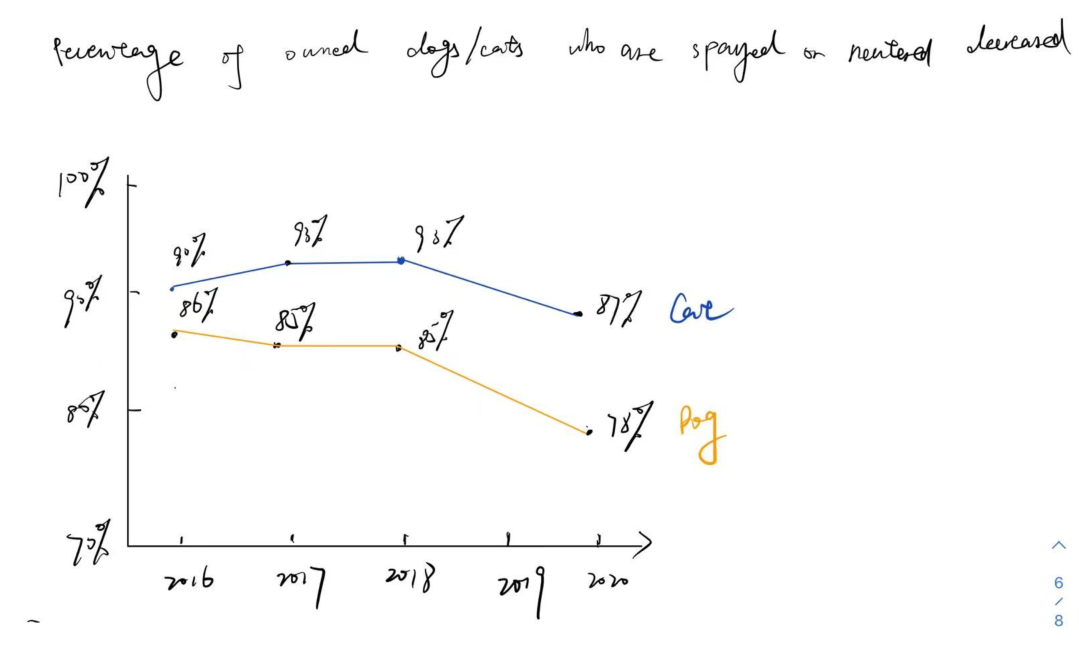 Percentage of owned dogs/cats who are spayed or neutered decreased
100%
93% 93%
90%
90%
86%
87% Cat
85% 85%
80%
78% Dog
70%
2016 2017 2018 2019 2020
6
/
8